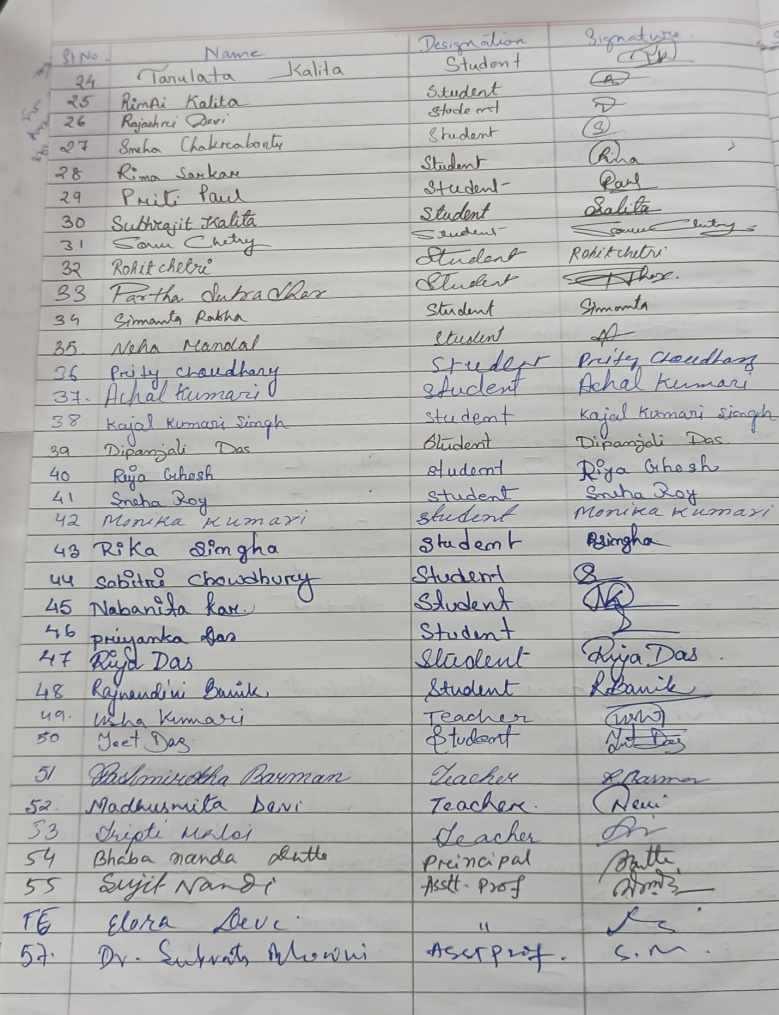 Sl No. Name Designation Signature.
24 Tarulata Kalita Student
25 Rimpi Kalita Student
26 Rajashri Devi Student
27 Sneha Chakraborty Student
28 Rima Sarkar Student Rima
29 Priti Paul Student Paul
30 Subhrajit Kalita Student Kalita
31 Sonu Chetry Student Sonu Chetry
32 Rohit chetri Student Rohit chetri
33 Partha Sutradhar Student
34 Simanta Rabha Student Simanta
35. Neha Mandal Student
36 Prity choudhary Student Prity Choudhary
37. Achal Kumari Student Achal Kumari
38 Kajal Kumari Singh student Kajal Kumari Singh
39 Dipanjali Das Student Dipanjali Das.
40 Riya Ghosh student Riya Ghosh
41 Sneha Roy Student Sneha Roy
42 Monika Kumari student Monika Kumari
43 Rika Singha Student Rsingha
44 Sabitri Chowdhury Student
45 Nabanita Kar. Student
46 Priyanka Das Student
47 Riya Das Student Riya Das.
48 Rajnandini Banik. Student R.Banik
49. Usha Kumari Teacher
50 Jeet Das Student Jeet Das
51 Barman Teacher
52. Madhusmita Devi Teacher. Devi
53 Tripti Teacher
54 Bhaba nanda Dutta Principal Dutta
55 Sujit Nandi Asstt. Prof
Elora Devi "
57. Dr. Asst Prof. S.M.